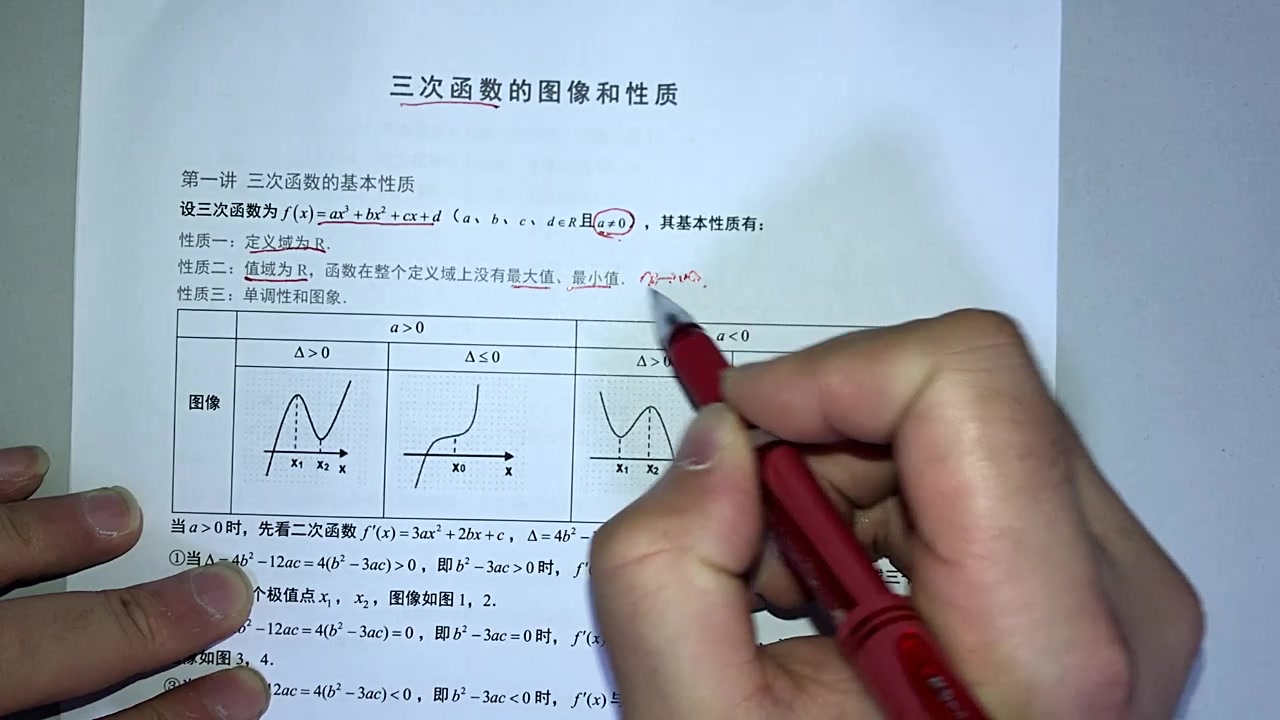 三次函数的图像和性质
第一讲 三次函数的基本性质
设三次函数为 f(x)=ax³+bx²+cx+d（a、b、c、d∈R且a≠0），其基本性质有：
性质一：定义域为 R.
性质二：值域为 R，函数在整个定义域上没有最大值、最小值.
性质三：单调性和图象.
a>0 a<0
Δ>0 Δ≤0 Δ>0
图像
x₁ x₂ x x₀ x x₁ x₂
当 a>0 时，先看二次函数 f′(x)=3ax²+2bx+c，Δ=4b²-
①当 Δ=4b²-12ac=4(b²-3ac)>0，即 b²-3ac>0 时，f′
个极值点 x₁，x₂，图像如图 1，2.
b²-12ac=4(b²-3ac)=0，即 b²-3ac=0 时，f′(x)
像如图 3，4.
③当 12ac=4(b²-3ac)<0，即 b²-3ac<0 时，f′(x)与